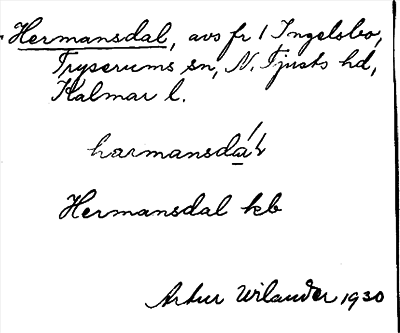 Hermansdal, avs fr 1 Ingelsbo,
Tryserums sn, N. Tjusts hd,
Kalmar l.
harmansdál
Hermansdal kb
Artur Wilander 1930